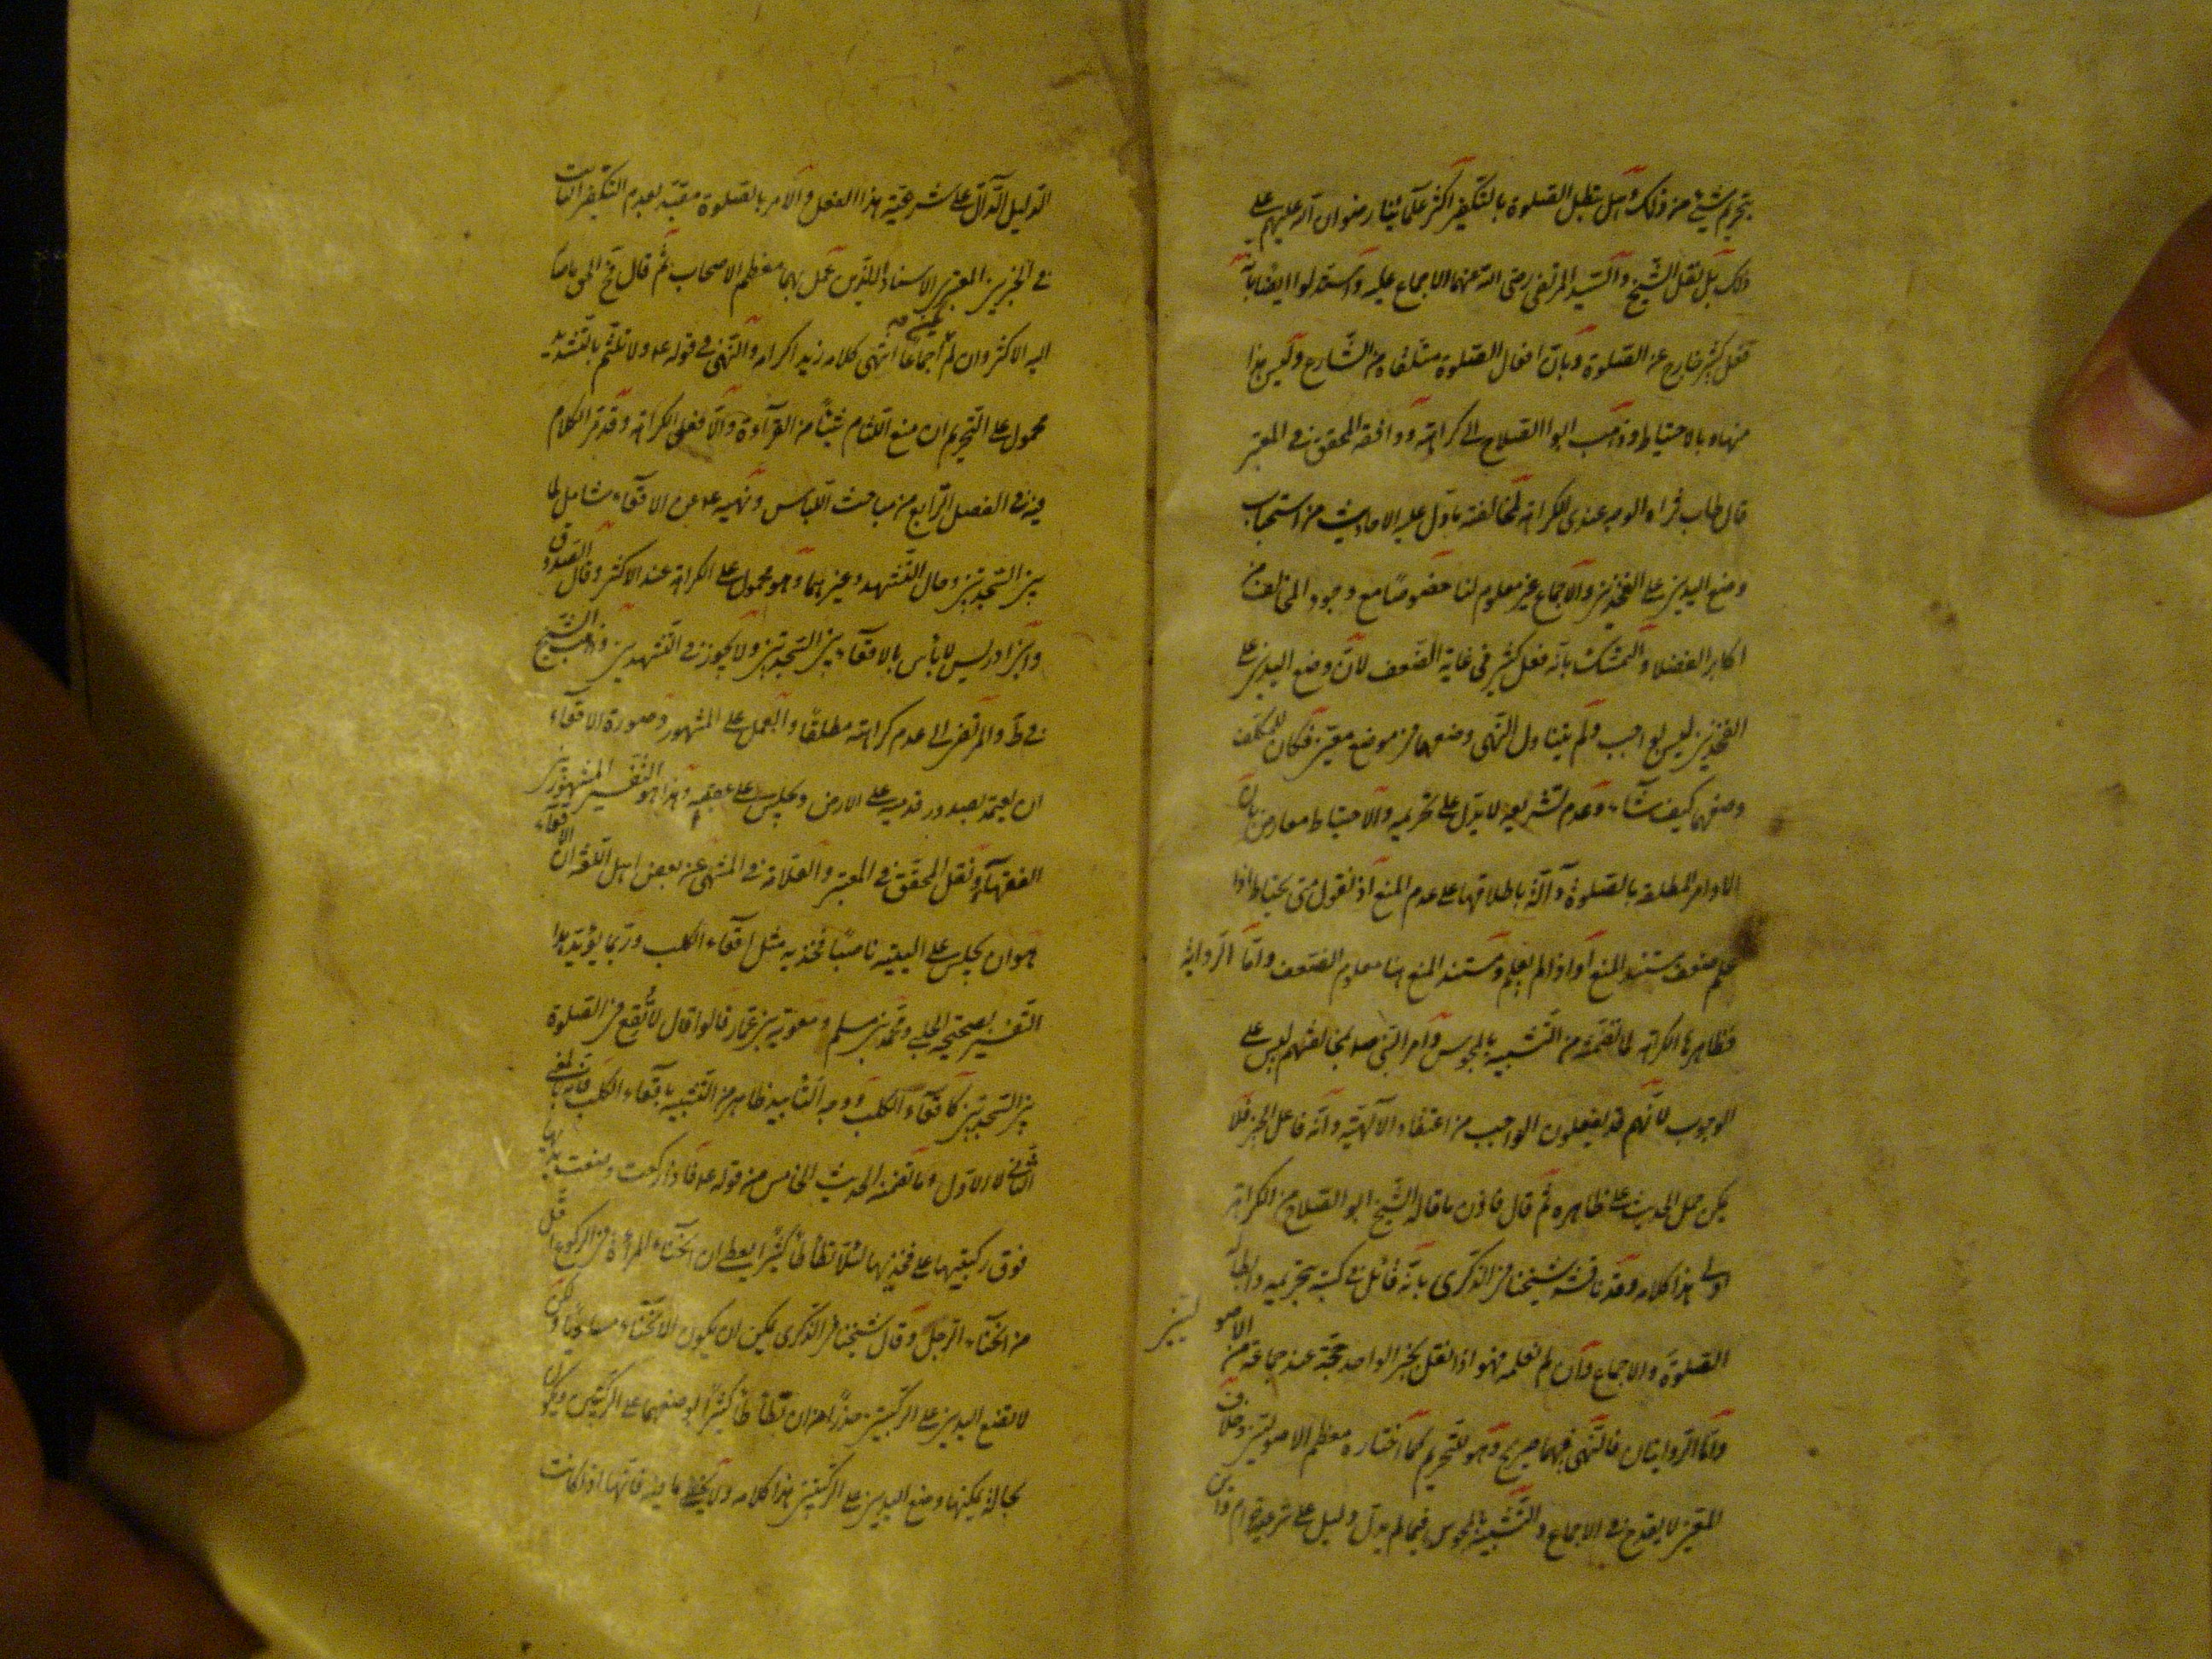 بتحريم شيئ من ذلك وهل تبطل الصلوة بالتكفير اكثر علمائنا رضوان الله عليهم على
ذلك بل نقل الشيخ والسيد المرتضى رضى الله عنهما الاجماع عليه واستدلوا ايضا بانه
فعل كثير خارج عن الصلوة وبان افعال الصلوة متلقاه من الشارع وليس هذا
منها وبالاحتياط وذهب ابو الصلاح الى كراهته ووافقه المحقق في المعتبر
قال طاب ثراه الوجه عندى الكراهة لمخالفته ما دل عليه الاحاديث من استحباب
وضع اليدين على الفخذين والاجماع غير معلوم لنا خصوصا مع وجود المخالف من
اكابر الفضلا والتمسك بانه فعل كثير في غاية الضعف لان وضع اليدين على
الفخذين ليس بواجب ولم يتناول النهى وضعهما في موضع معين فكان للمكلف
وضعهما كيف شاء وعدم تشريعه لا يدل على تحريمه والاحتياط معارض بان
الاوامر المطلقة بالصلوة دالة باطلاقها على عدم المنع اذ نقول متى يحتاط اذا
علم ضعف مستند المنع او اذا لم يعلم ومستند المنع هنا معلوم الضعف واما الرواية
فظاهرها الكراهة لما تضمنه من التشبيه بالمجوس وامر النبى صلم بمخالفتهم ليس على
الوجوب لانهم قد يفعلون الواجب من اعتقاد الالهية وانه فاعل الخير فلا
يمكن حمل الحديث على ظاهره ثم قال فاذن ما قاله الشيخ ابو الصلاح من الكراهة
اولى هذا كلامه وقد ناقشه شيخنا في الذكرى بانه قائل في كتبه بتحريمه وابطاله
الصلوة والاجماع وان لم نعلمه فهو اذا نقل بخبر الواحد حجة عند جماعة من الاصوليين
واما الروايتان فالنهى فيهما صريح وهو للتحريم كما اختاره معظم الاصوليين وخلاف
المعين لا يقدح في الاجماع والتشبيه بالمجوس فيما لم يدل دليل على شرعيته حرام واين
الدليل الدال على شرعية هذا الفعل والامر بالصلوة مقيد بعدم التكفير الثابت
في الخبرين المعتبري الاسناد اللذين عمل بهما معظم الاصحاب ثم قال فح الحق ما صار
اليه الاكثر وان لم يكن اجماعا انتهى كلامه زيد اكرامه والنهى في قوله عم ولا تلثم بالتشديد
محمول على التحريم ان منع اللثام شيئا من القراءة والا فعلى الكراهة وقد مر الكلام
فيه في الفصل الرابع من مباحث اللباس ونهيه عم عن الاقعاء شامل لما
بين السجدتين وحال التشهد وغيرهما وهو محمول على الكراهة عند الاكثر وقال الصدوق
وابن ادريس لا باس بالاقعاء بين السجدتين ولا يجوز في التشهدين وذهب الشيخ
في ط والمرتضى الى عدم كراهته مطلقا والعمل على المشهور وصورة الاقعاء
ان يعتمد بصدور قدميه على الارض ويجلس على عقبيه وهذا هو التفسير المشهور بين
الفقهاء ونقل المحقق في المعتبر والعلامة في المنتهى عن بعض اهل اللغة ان الاقعاء
هو ان يجلس على اليتيه ناصبا فخذيه مثل اقعاء الكلب وربما يؤيد هذا
التفسير بصحيحة الحلبى ومحمد بن مسلم ومعوية بن عمار قالوا قال لا تقع في الصلوة
بين السجدتين كاقعاء الكلب ووجه التاييد ظاهر من التشبيه باقعاء الكلب فانه بالمعنى
الثانى لا الاول وما تضمنه الحديث الخامس من قوله عم فاذا ركعت وضعت يديها
فوق ركبتيها على فخذيها لئلا تطأطأ كثيرا يعطى ان انحناء المراة في الركوع اقل
من انحناء الرجل وقال شيخنا في الذكرى يمكن ان يكون الانحناء مساويا ولكن
لا تضع اليدين على الركبتين حذرا من ان تطأطأ كثيرا بوضعهما على الركبتين وتكون
بحالة يمكنها وضع اليدين على الركبتين هذا كلامه ولا يخفى ما فيه فانها اذا كانت